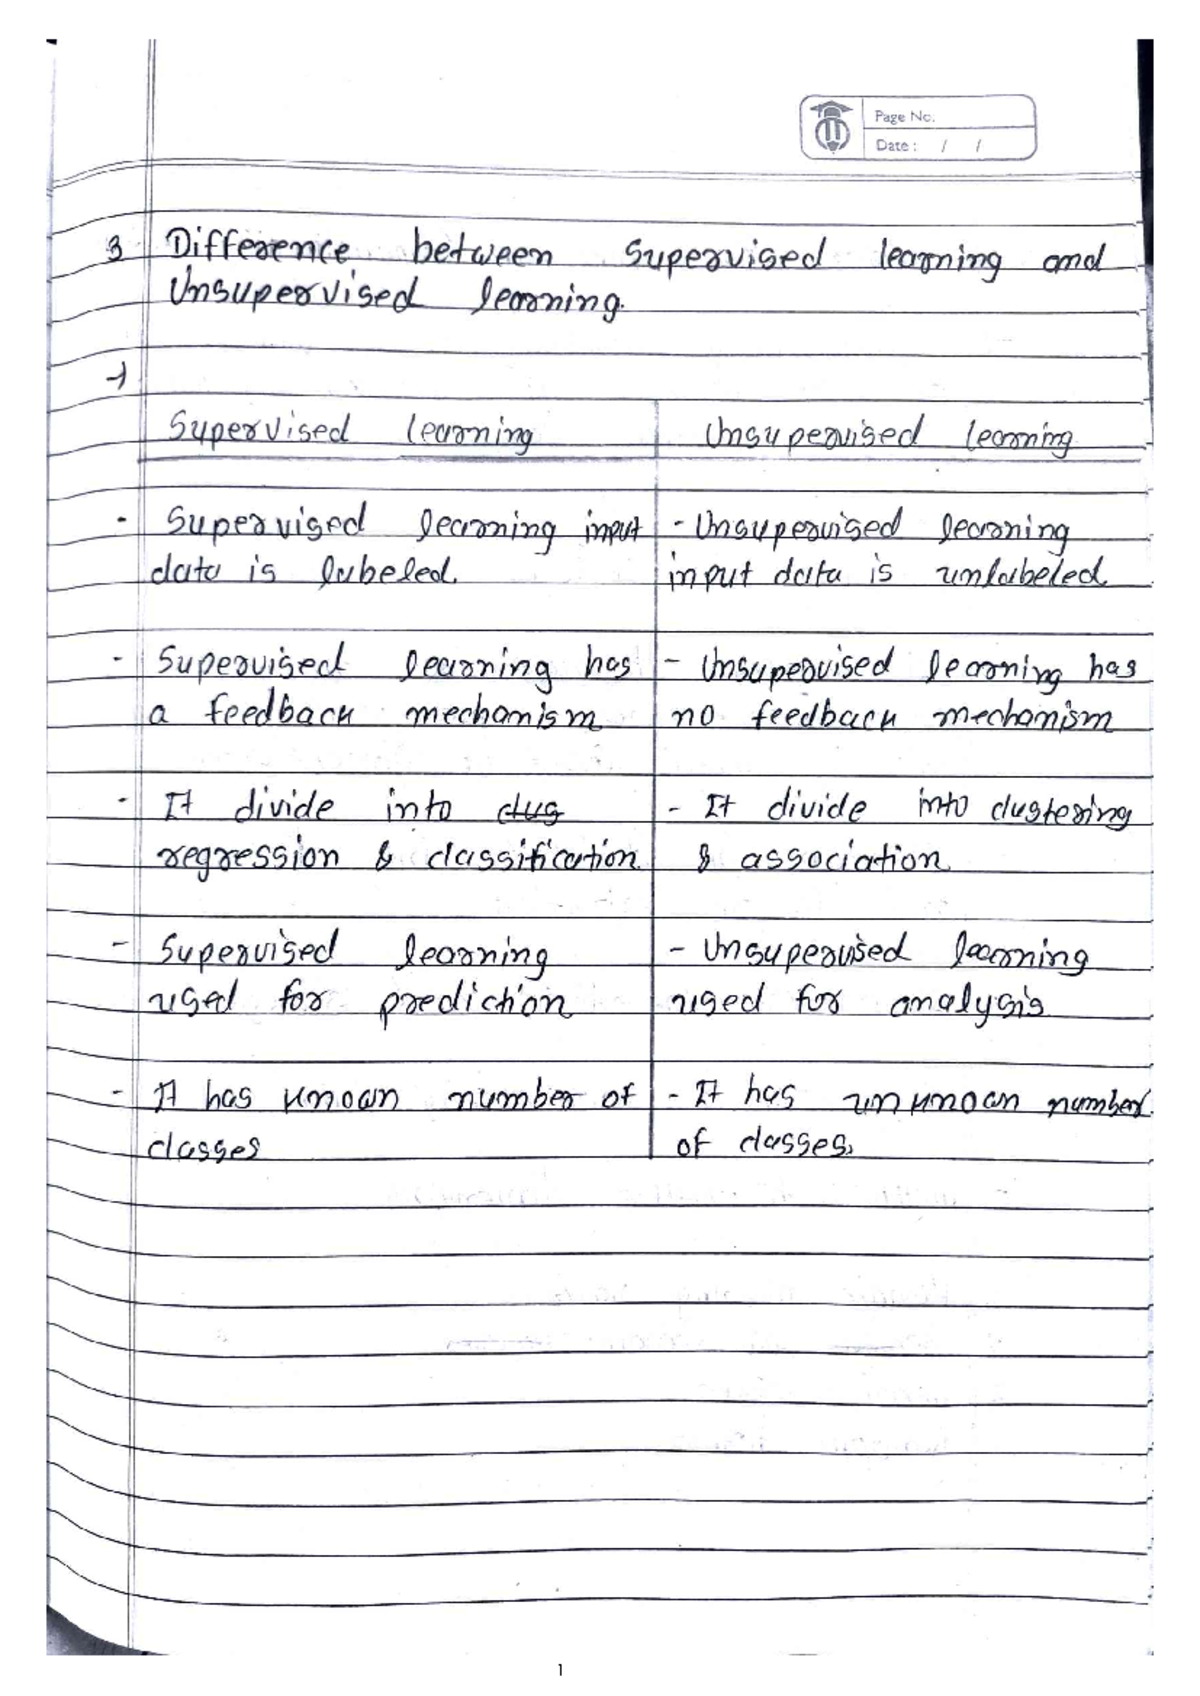 Page No.
Date : / /
3 Difference between Supervised learning and
Unsupervised learning.
→
Supervised learning Unsupervised learning
- Supervised learning input - Unsupervised learning
data is labeled. input data is unlabeled
- Supervised learning has - Unsupervised learning has
a feedback mechanism no feedback mechanism
- It divide into clus - It divide into clustering
regression & classification & association
- Supervised learning - Unsupervised learning
used for prediction used for analysis
- It has knoan number of - It has unknoan number
classes of classes.
1